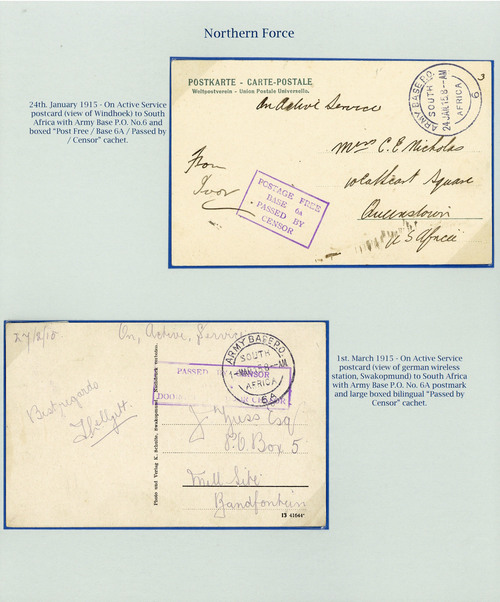 Northern Force
24th. January 1915 - On Active Service
postcard (view of Windhoek) to South
Africa with Army Base P.O. No.6 and
boxed "Post Free / Base 6A / Passed by
/ Censor" cachet.
POSTKARTE - CARTE-POSTALE
Weltpostverein - Union Postale Universelle.
On Active Service
ARMY BASE P.O.
SOUTH
24 JAN 15 8-AM
AFRICA
6
3
From
Ivor
POSTAGE FREE
BASE 6A
PASSED BY
CENSOR
Miss C. E. Nicholas
Square
Queenstown
S Africa
1st. March 1915 - On Active Service
postcard (view of german wireless
station, Swakopmund) to South Africa
with Army Base P.O. No. 6A postmark
and large boxed bilingual "Passed by
Censor" cachet.
27/2/15
On, Active, Service
ARMY BASE P.O.
SOUTH
AFRICA
6A
PASSED BY CENSOR
Best regards
Photo und Verlag K. Schulte, Swakopmund. Nachdruck verboten.
J. Esq
P.O. Box 5
Mill Site
Randfontein
13 41644